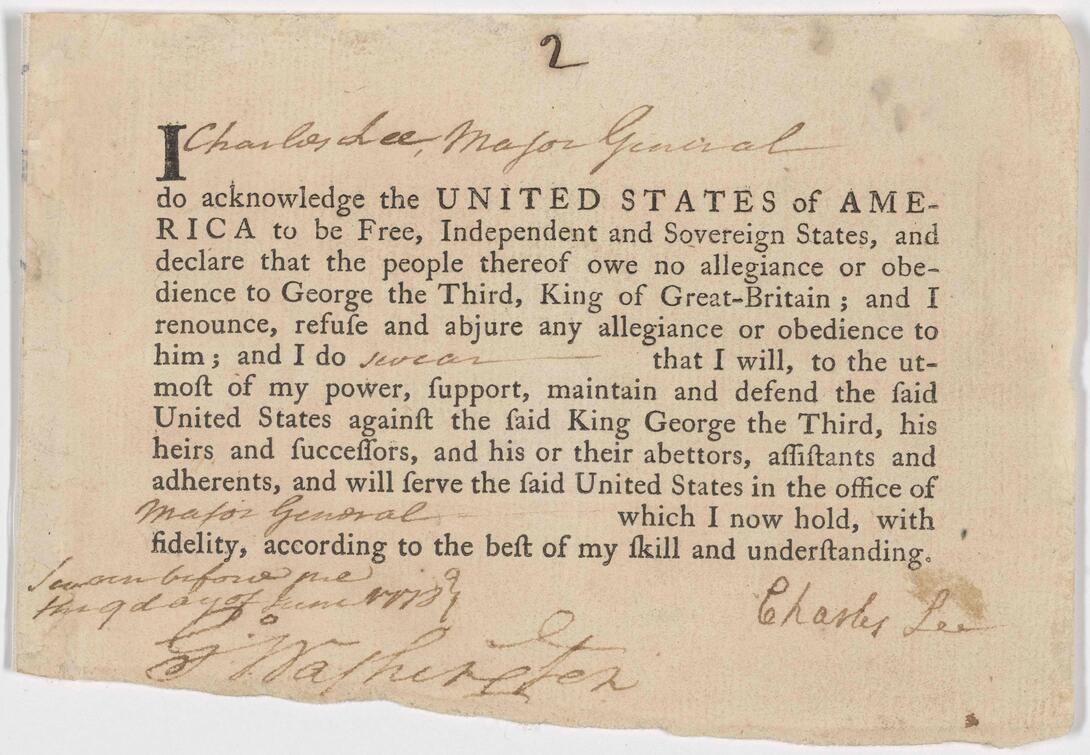 2
I Charles Lee, Major General
do acknowledge the UNITED STATES of AME-
RICA to be Free, Independent and Sovereign States, and
declare that the people thereof owe no allegiance or obe-
dience to George the Third, King of Great-Britain; and I
renounce, refuſe and abjure any allegiance or obedience to
him; and I do swear that I will, to the ut-
moſt of my power, ſupport, maintain and defend the ſaid
United States againſt the ſaid King George the Third, his
heirs and ſucceſſors, and his or their abettors, aſſiſtants and
adherents, and will ſerve the ſaid United States in the office of
Major General which I now hold, with
fidelity, according to the beſt of my ſkill and underſtanding.
Sworn before me
this 9 day of June 1778
Charles Lee
G Washington